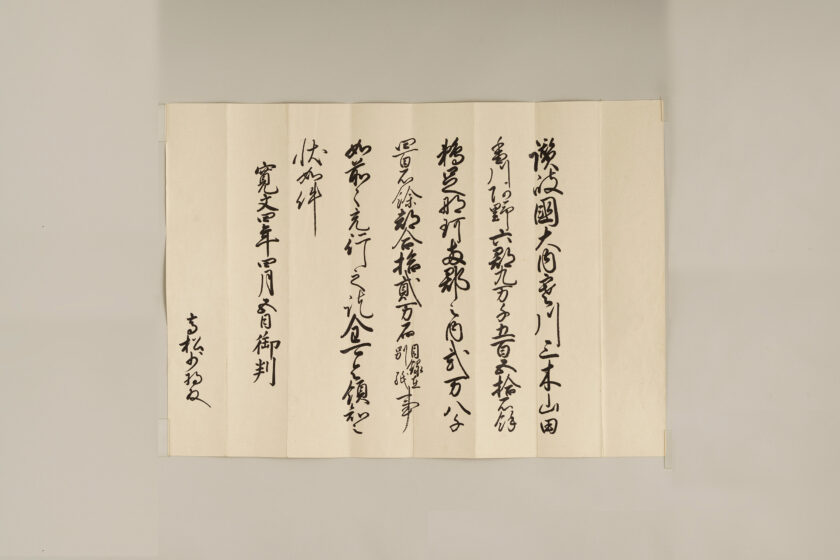 讃岐國大内寒川三木山田
香川阿野六郡九万千五百五拾石余
鵜足那珂両郡之内弐万八千
四百石餘都合拾貳万石目録在別紙事
如前々充行之訖全可令領知之
状如件
寛文四年四月五日御判
高松少将殿